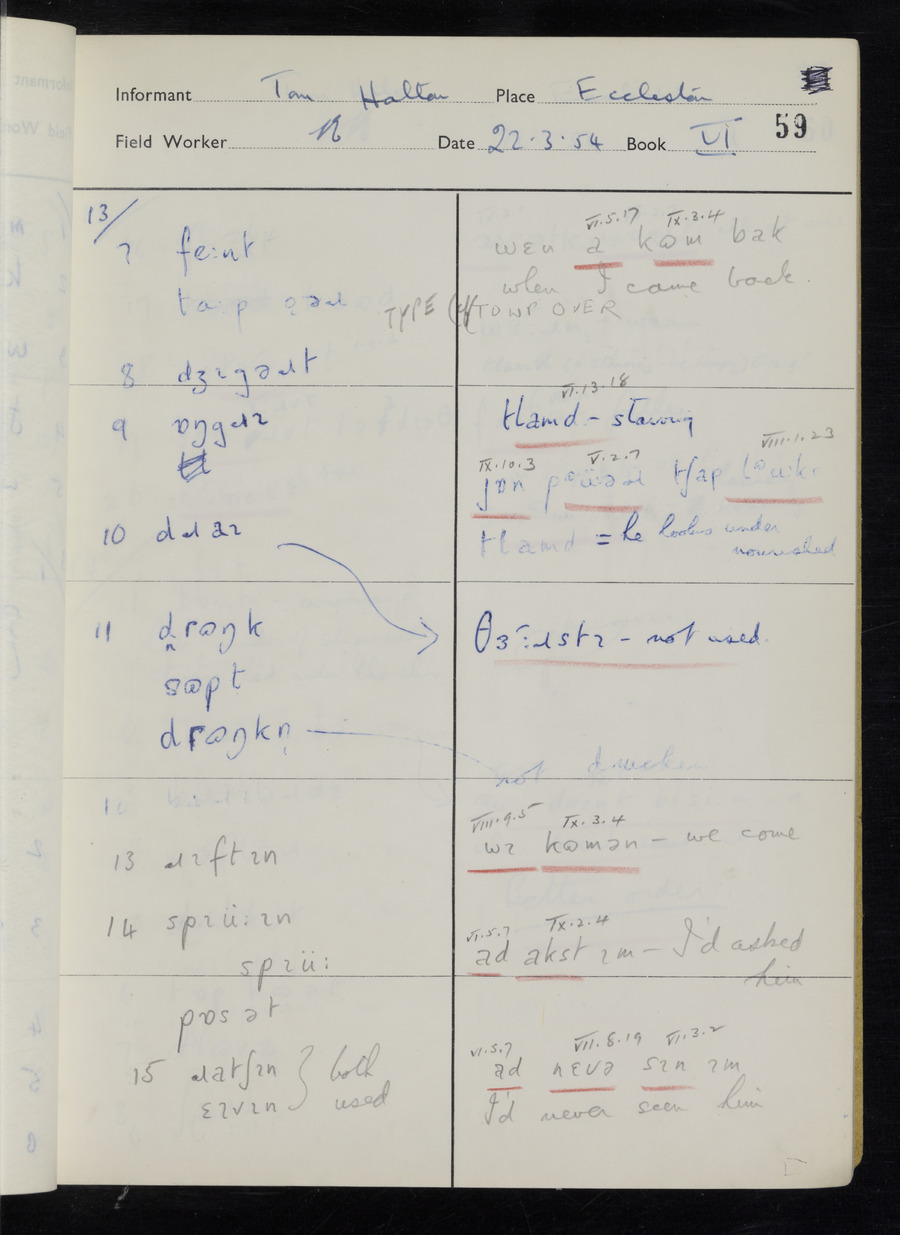 Informant Tom Halton Place Eccleston
Field Worker Date 22.3.54 Book VI 59
13/
7 feɪnt
taɪp ɒəɹ
TYPE (cf TOWP OVER
8
9
10
11 drɷŋk
sɷpt
drɷŋkn̩
13 ɹɪftɪn
14 sprüːɪn
sprüː
pɒsət
15 ɹatʃɪn } both
ɛɪvɪn } used
VI.5.17 IX.3.4
wɛn a kɷm bak
when I came back.
VI.13.18
tlamd – starving
IX.10.3 V.2.7 VIII.1.23
jɒn tʃap
tlamd = he looks under
nourished
– not used.
not drunken
VIII.9.5 IX.3.4
wɪ kɷmən – we come
VI.5.7 IX.2.4
ad akst ɪm – I'd asked
him
VI.5.7 VII.8.19 VI.3.2
ad nɛvə sɪn ɪm
I'd never seen him